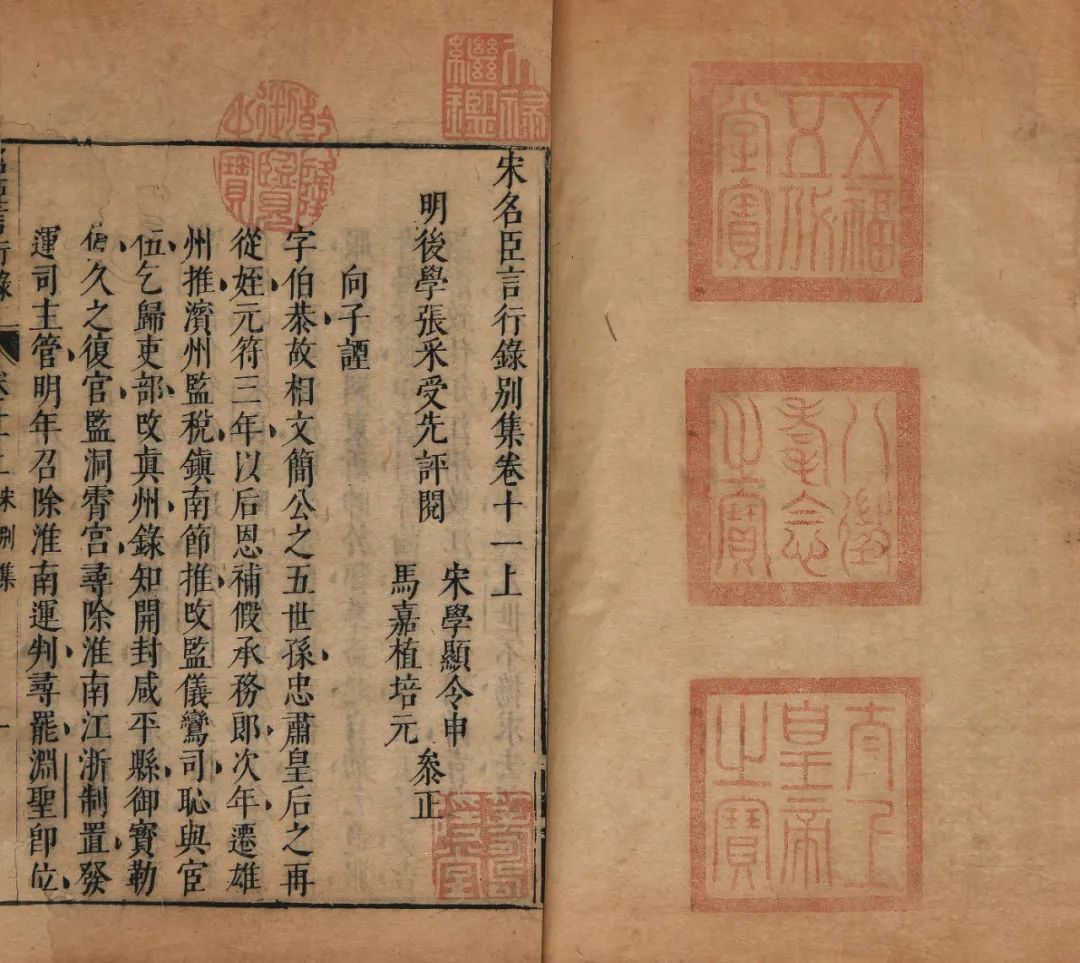 五福
五代
堂寶
八徵
耄念
之寶
太上
皇帝
之寶
天祿
繼鑑
宋名臣言行錄別集卷十一上
明後學張采受先評閱
宋學顯令申
馬嘉植培元
叅正
向子諲
乾隆
御覽
之寶
字伯恭故相文簡公之五世孫忠肅皇后之再
從姪元符三年以后恩補假承務郎次年遷雄
州推濱州監稅鎮南節推改監儀鸞司恥與宦
伍乞歸吏部改眞州錄知開封咸平縣御寶勒
停久之復官監洞霄宮尋除淮南江浙制置發
運司主管明年召除淮南運判尋罷淵聖卽位
言行錄
宋別集
一